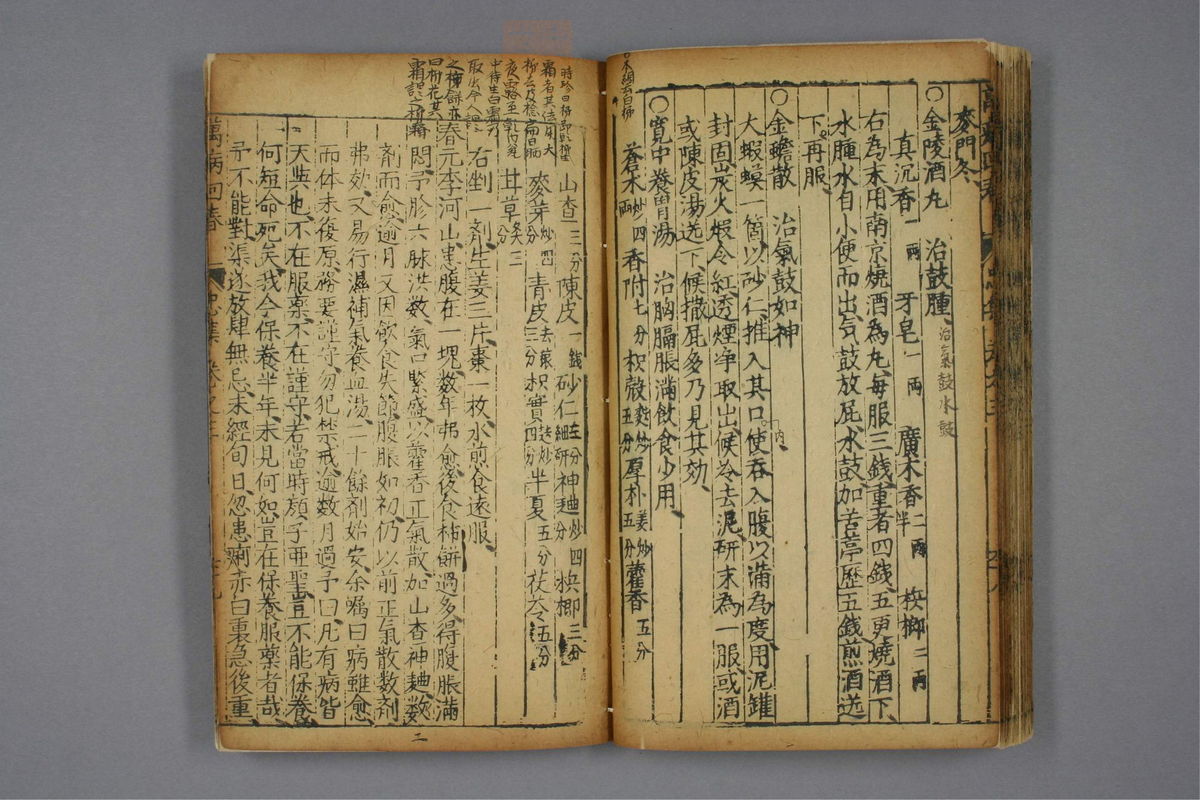 麥門冬
○金陵酒丸 治鼓腫 治氣鼓水鼓
真沉香一兩 牙皂一兩 廣木香二兩半 梹榔二兩
右為末用南京燒酒為丸每服三錢重者四錢五更燒酒下
水腫水自小便而出气鼓放屁水鼓加苦葶歷五錢煎酒送
下再服
○金蟾散 治氣鼓如神
大蝦蟆一箇以砂仁推入其口使吞入腹以滿為度用泥罐
內
封固炭火煅令紅透煙净取出候冷去泥研末為一服或酒
或陳皮湯送下候撒屁多乃見其効
○寬中養胃湯 治胸膈脹滿飲食少用
蒼朮炒四兩 香附七分 枳殼麩炒五分 厚朴姜炒五分 藿香五分
山查三分 陳皮一錢 砂仁細研五分 神麯炒四分 梹榔三分
麥芽炒四分 青皮去穰三分 枳實麩炒四分 半夏五分 茯苓五分
甘草炙三分
右剉一剤生姜三片棗一枚水煎食遠服
春元李河山患腹在一塊数年弗愈後食柿餅過多得腹脹滿
悶予胗六脉洪数氣口緊盛以藿香正氣散加山查神麯数
剤而愈逾月又因飲食失節腹脹如初仍以前正氣散数剤
弗効又易行濕補氣養血湯二十餘剤始安余嘱曰病雖愈
而体未後原務要謹守勿犯禁戒逾数月過予曰凡有病皆
天與也不在服藥不在謹守若當時顔子亜聖豈不能保養
何短命死矣我今保養半年未見何如豈在保養服藥者哉
予不能對渠遂放肆無忌未經旬日忽患痢赤白裏急後重
萬病回春 忠集
二